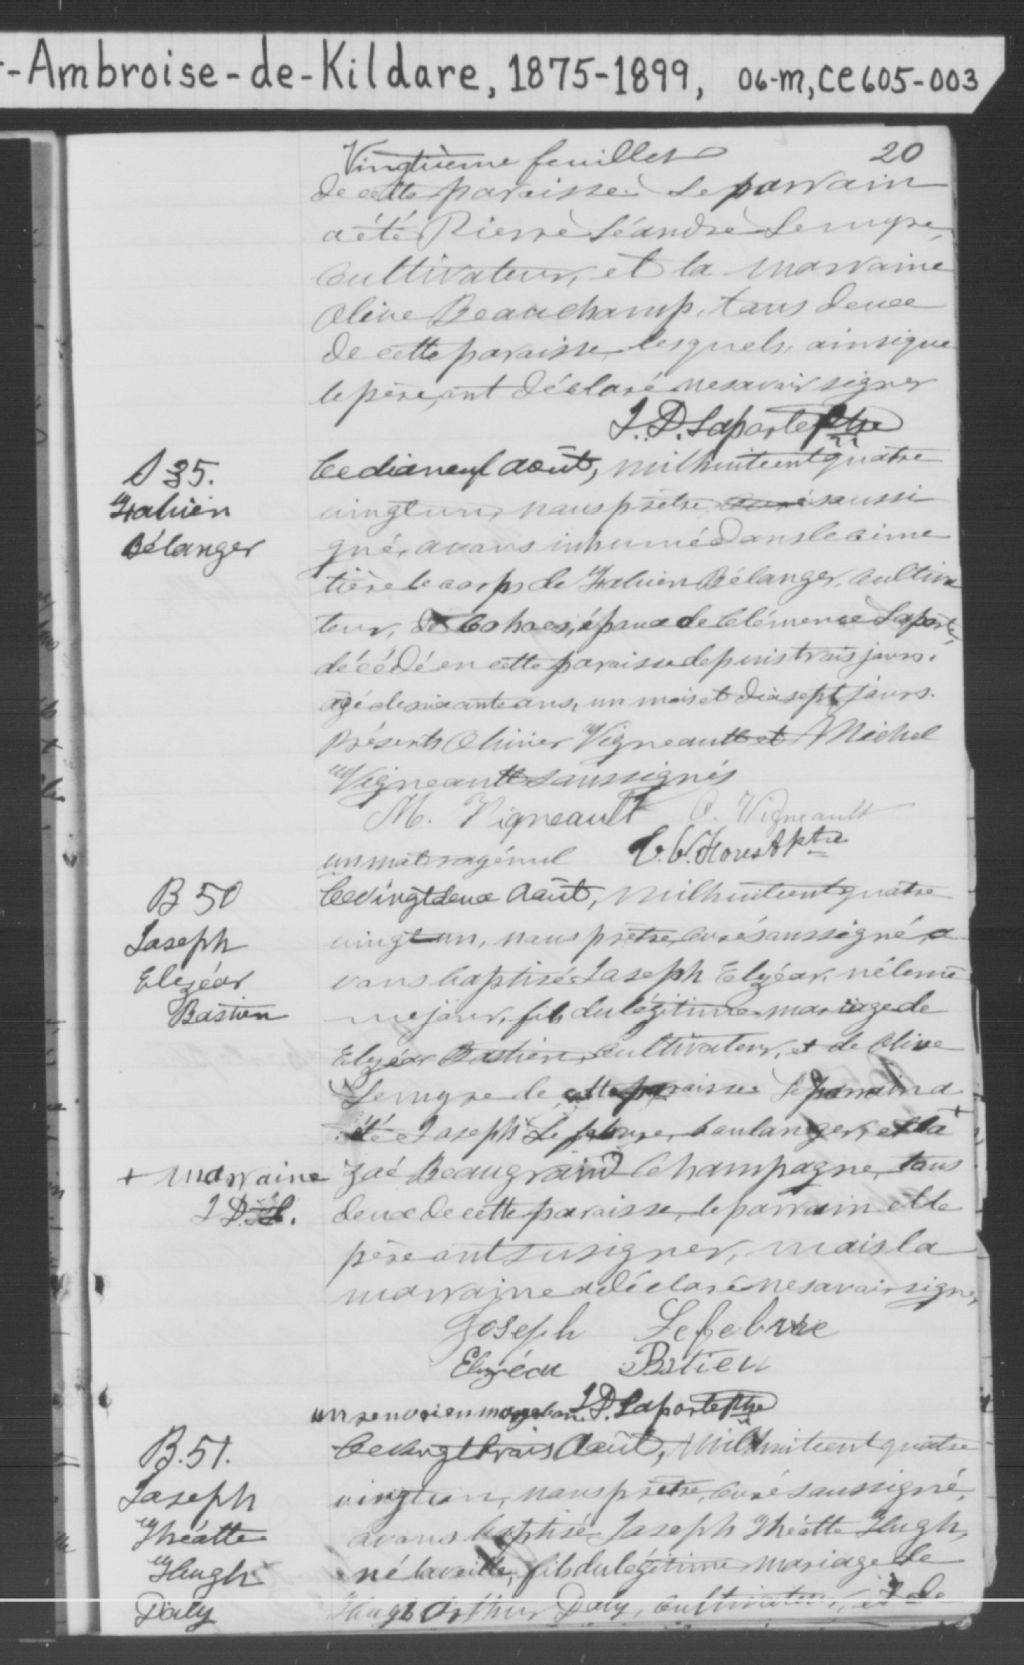 -Ambroise-de-Kildare, 1875-1899, 06-M, CE605-003
Vingtième feuillet 20
de cette paroisse. Le parrain
a été Pierre Léandre Lemyre,
cultivateur, et la marraine
Olive Beauchamp, tous deux
de cette paroisse, lesquels, ainsi que
le père, ont déclaré ne savoir signer
J. D. Laporte Ptre
S 35.
Fabien
Bélanger
Ce dix neuf août, mil huit cent quatre
vingt un, nous prêtre soussi
gné, avons inhumé dans le cime
tière le corps de Fabien Bélanger, cultiva
teur, de Cohoes, époux de Clémence Laporte,
décédé en cette paroisse depuis trois jours,
âgé de soixante ans, un mois et dix sept jours.
Présents Olivier Vigneault et Michel
Vigneault soussignés
M. Vigneault O. Vigneault
un mot rayé nul Ptre
B 50
Joseph
Elzéar
Bastien
Ce vingt deux Août, mil huit cent quatre
vingt un, nous prêtre, curé soussigné, a
vons baptisé Joseph Elzéar, né le mê
me jour, fils du légitime mariage de
Elzéar Bastien, cultivateur, et de Olive
Lemyre de cette paroisse Le parrain a
été Joseph Lefebvre, boulanger, et la +
+ marraine
J D. L.
Zoé Beaugrand Champagne, tous
deux de cette paroisse, le parrain et le
père ont su signer, mais la
marraine a déclaré ne savoir signer
Joseph Lefebvre
Elzéar Bstien
un renvoi en marge bon. J. D. Laporte Ptre
B. 51.
Joseph
Théatte
Hugh
Daly
Ce vingt trois Août, mil huit cent quatre
vingt un, nous prêtre, curé soussigné,
avons baptisé Joseph Théatte Hugh,
né la veille, fils du légitime mariage de
Hugh Arthur Daly, cultivateur, et de